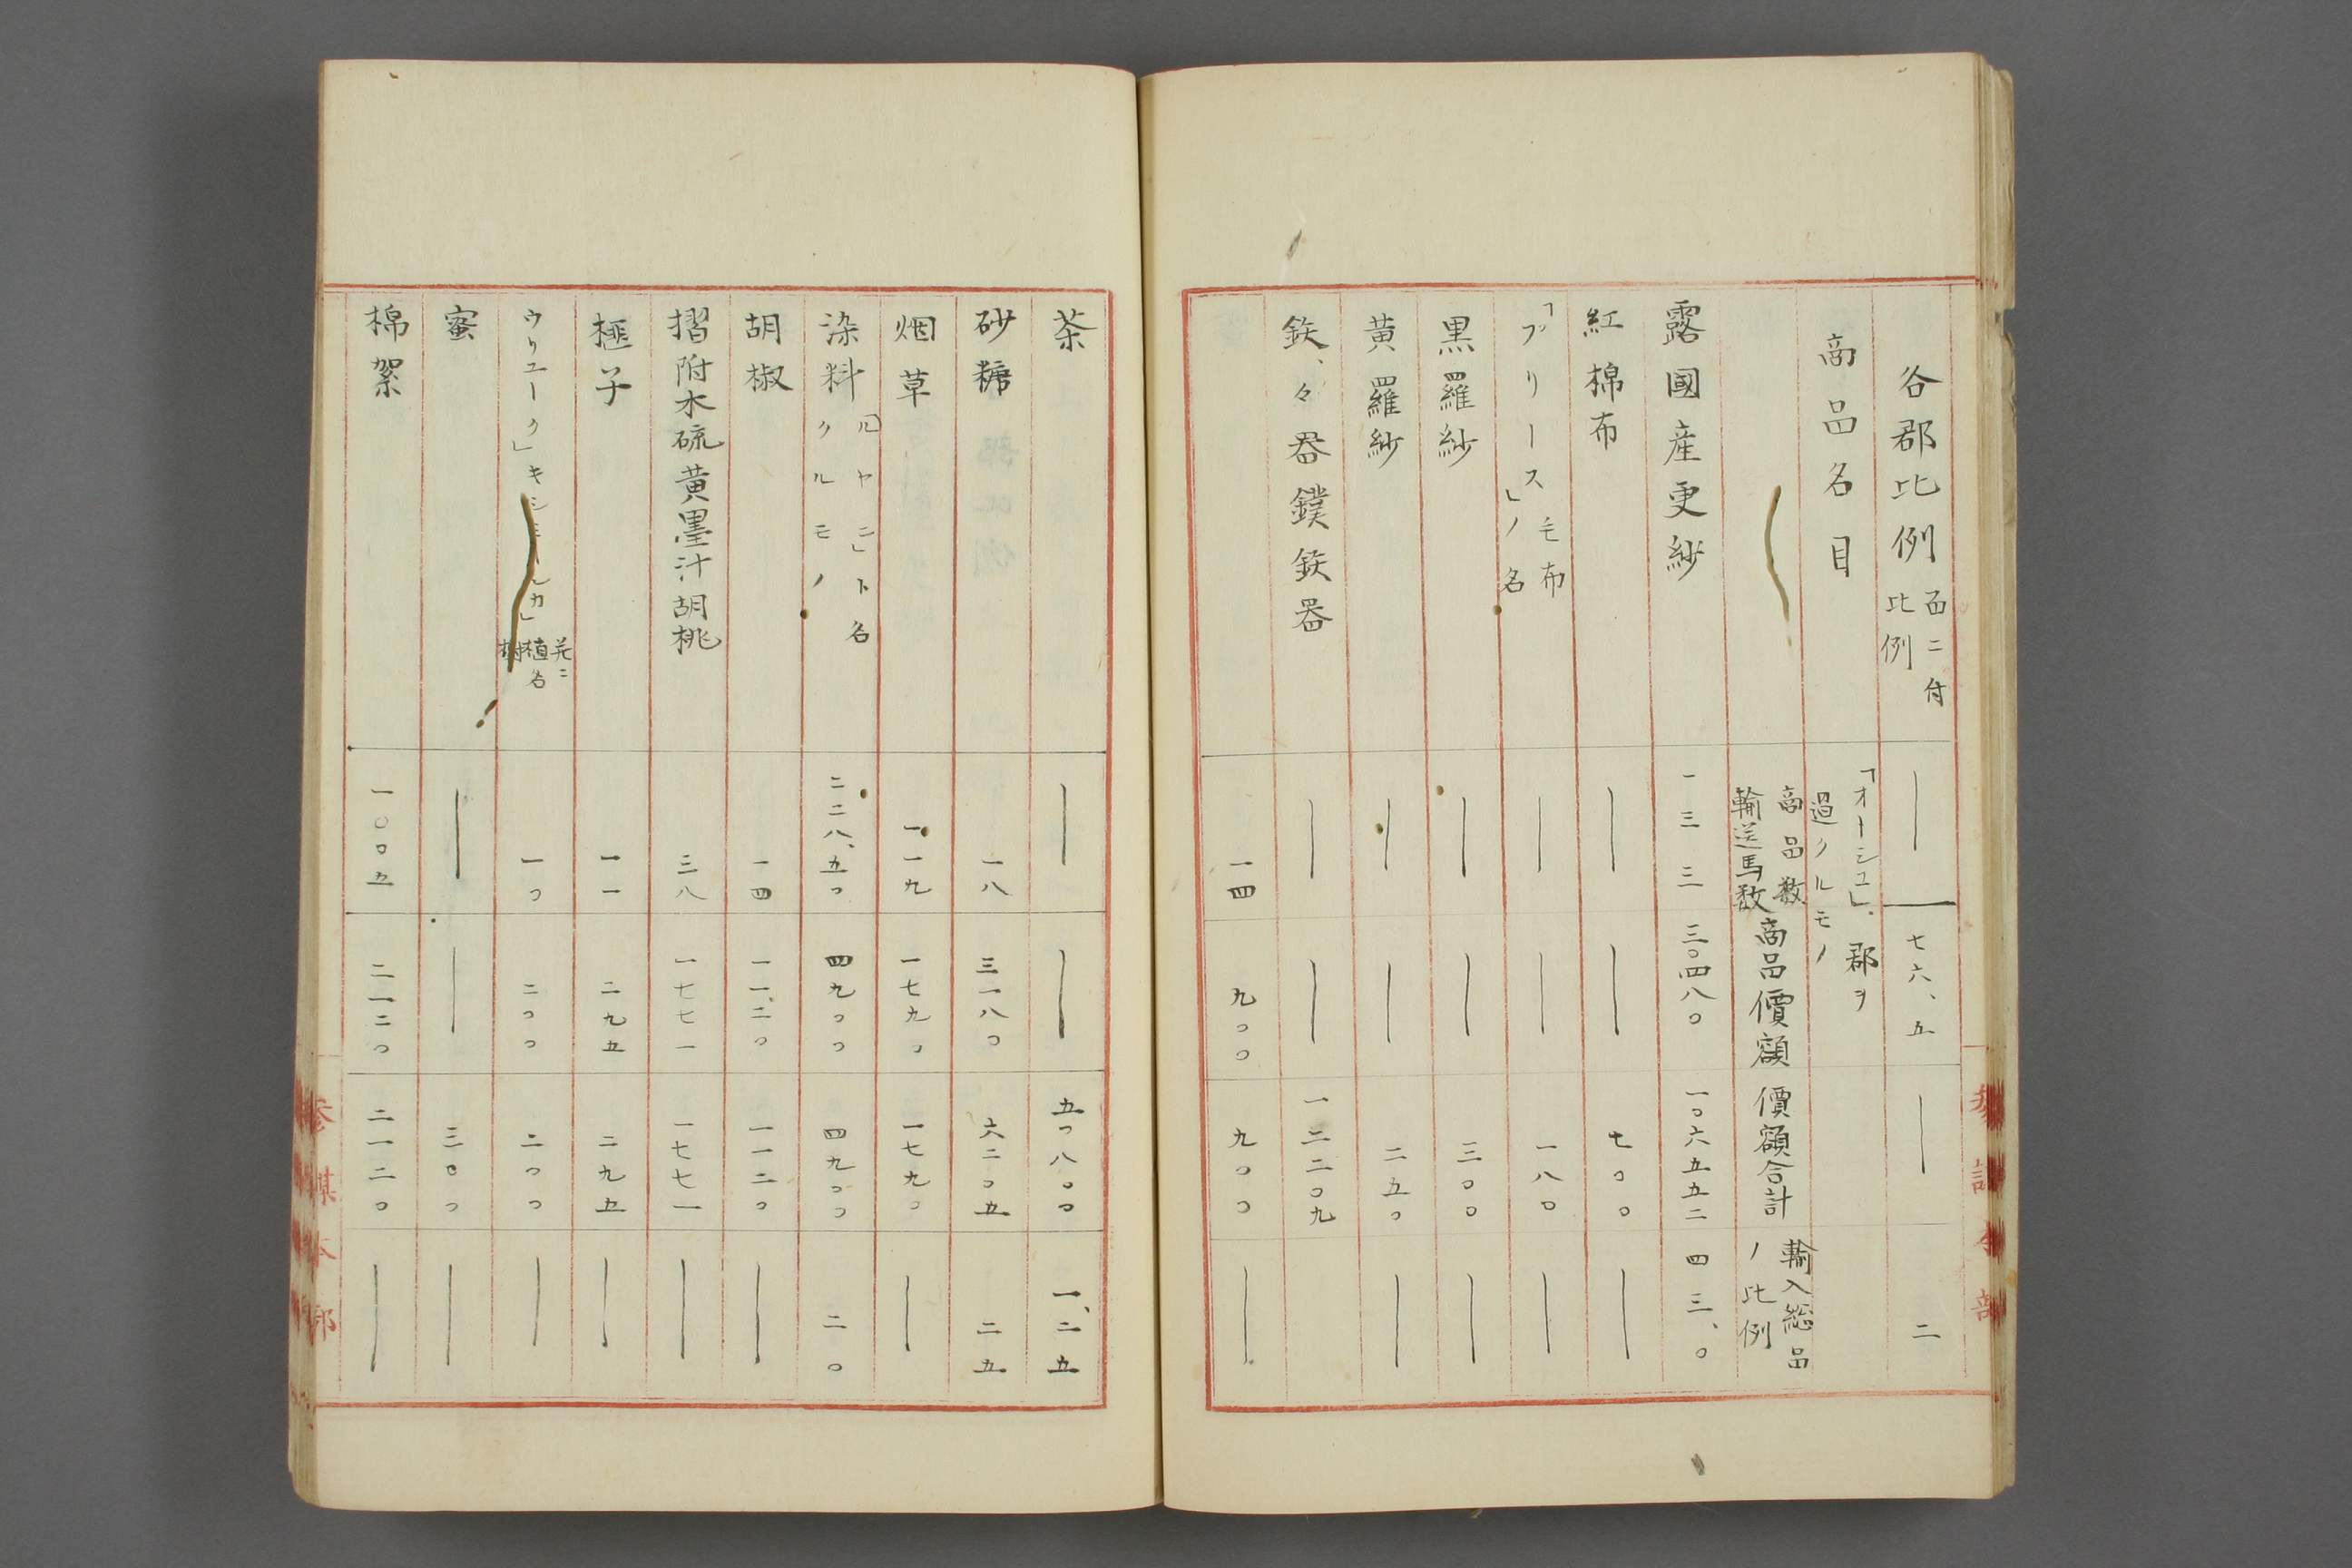 各郡比例 百ニ付比例 ― 七六、五 ― 二
商品名目 「オーシユ」、郡ヲ過クルモノ
商品数 輸送馬数 商品價額 價額合計 輸入総品ノ比例
露國産更紗 一三三 三〇四八〇 一〇六五五二 四三、〇
紅棉布 ― ― 七〇〇 ―
「フリース」ノ名 毛布 ― ― 一八〇 ―
黒羅紗 ― ― 三〇〇 ―
黄羅紗 ― ― 二五〇 ―
鉄、々器鏷鉄器 ― ― 一二二〇九
一四 九〇〇 九〇〇 ―
茶 ― ― 五〇八〇〇 一、二五
砂糖 一八 三一八〇 六二〇五 二五
烟草 一一九 一七九〇 一七九〇 ―
染料 「ルヤニ」ト名クルモノ 二二八、五〇 四九〇〇 四九〇〇 二〇
胡椒 一四 一一、二〇 一一二〇 ―
摺附木硫黄墨汁胡桃 三八 一七七一 一七七一 ―
榧子 一一 二九五 二九五 ―
ウリユーク」キシ カ」 植名 一〇 二〇〇 二〇〇 ―
蜜 ― ― 三〇〇 ―
棉絮 一〇〇五 二一二〇 二一二〇 ―
参謀本部
参謀本部